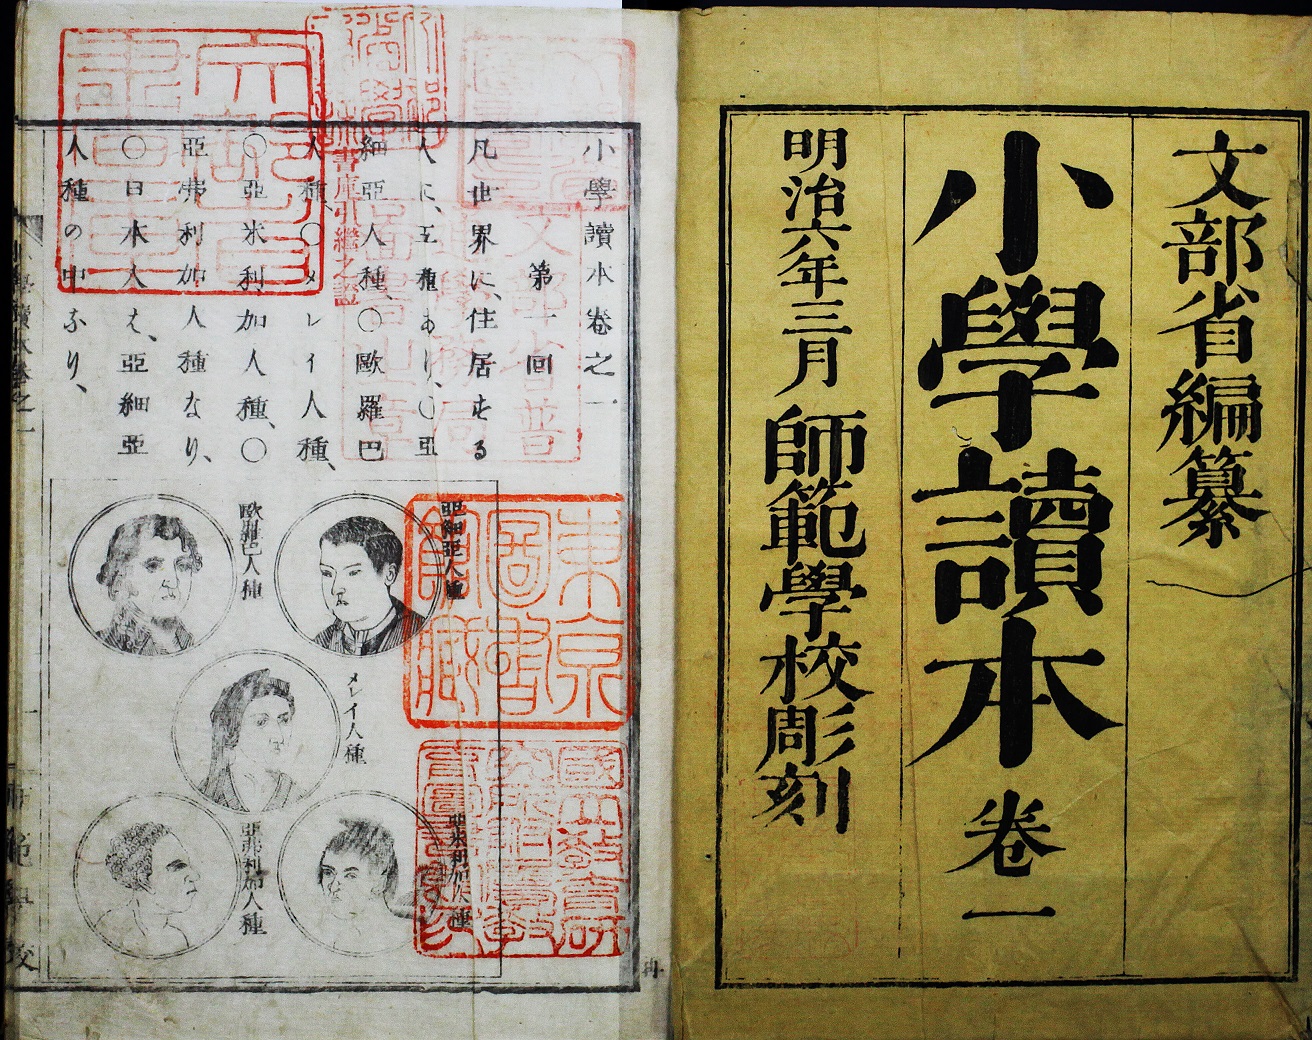 文部省編纂
小學讀本 卷一
明治六年三月 師範學校彫刻
小學讀本卷之一
第一回
凡世界に、住居する
人に、五種あり、〇亞
細亞人種、〇歐羅巴
人種、〇メレイ人種、
〇亞米利加人種、〇
亞弗利加人種なり、
〇日本人は、亞細亞
人種の中なり、
亞細亞人種
歐羅巴人種
メレイ人種
亞米利加人種
亞弗利加人種
東京
圖書
館藏